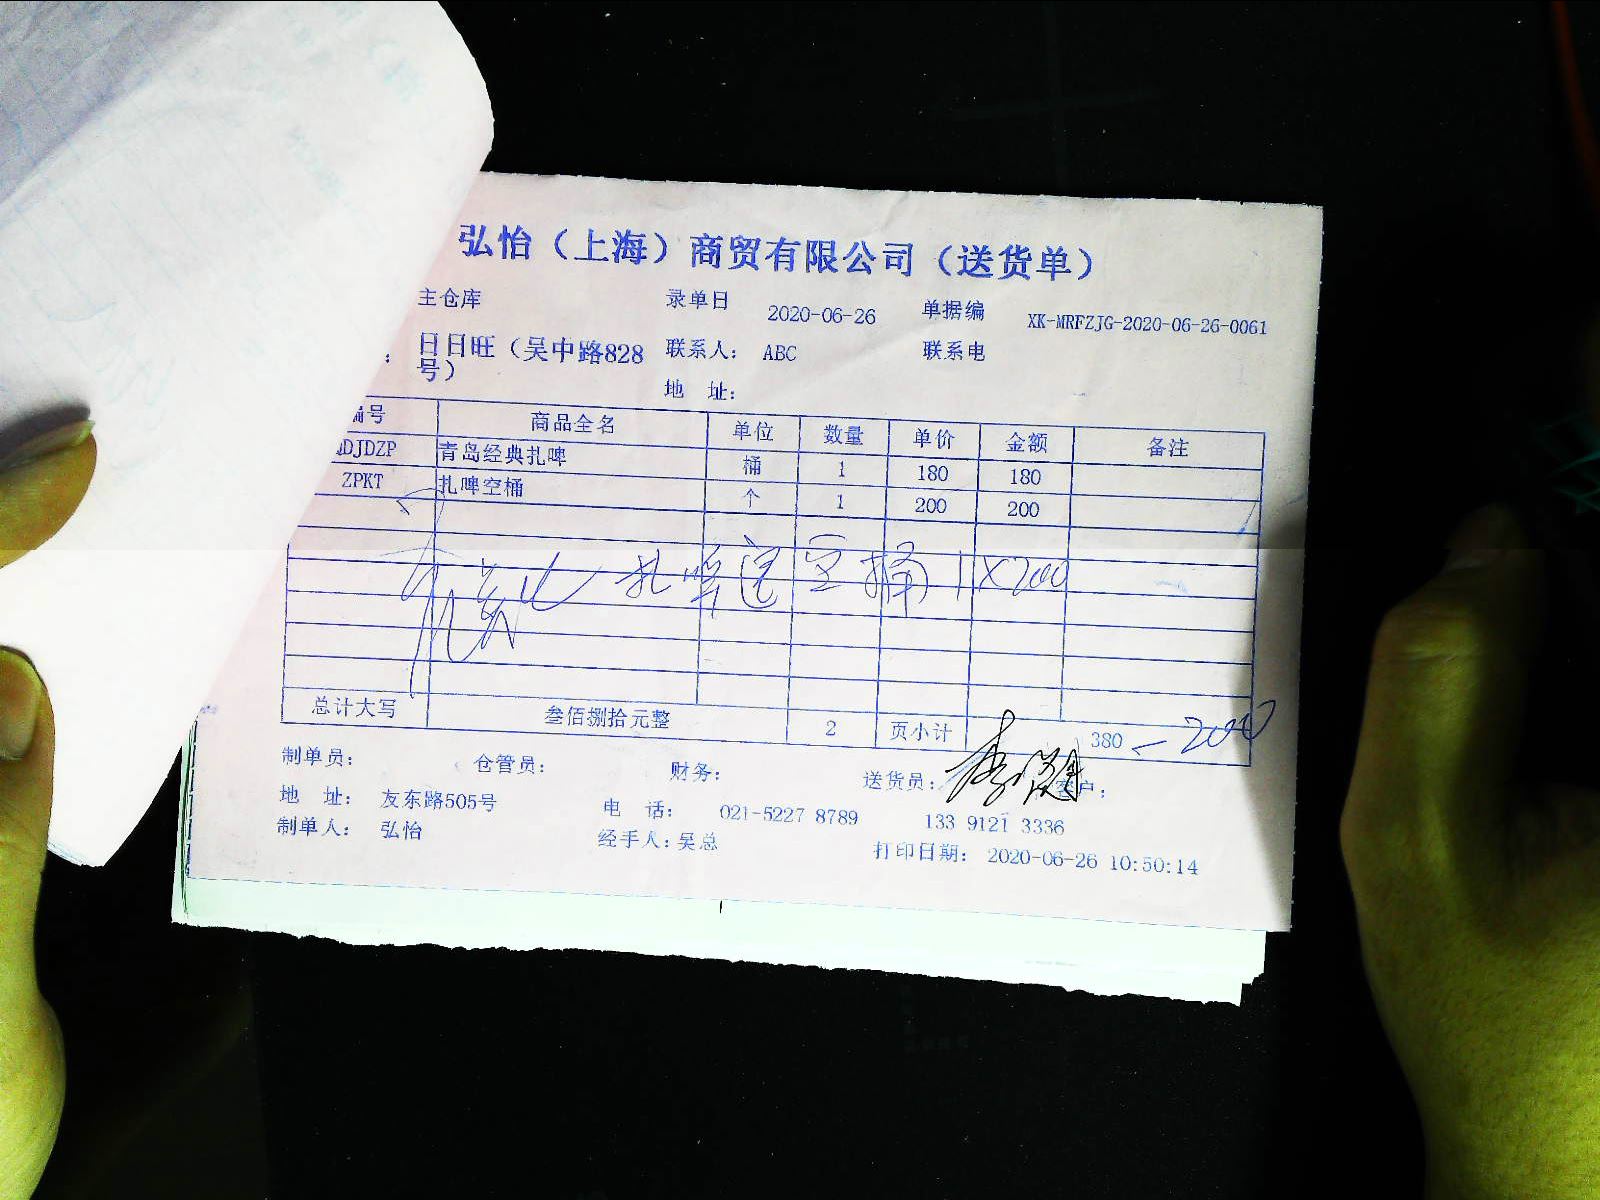 弘怡（上海）商贸有限公司（送货单）
主仓库 录单日 2020-06-26 单据编 XK-MRFZJG-2020-06-26-0061
：日日旺（吴中路828号） 联系人： ABC 联系电
地 址：
编号 商品全名 单位 数量 单价 金额 备注
DJDZP 青岛经典扎啤 桶 1 180 180
ZPKT 扎啤空桶 个 1 200 200
扎啤退空桶 1X200
总计大写 叁佰捌拾元整 2 页小计 380 - 200
制单员： 仓管员： 财务： 送货员： 客户：
地 址： 友东路505号 电 话： 021-5227 8789 133 9121 3336
制单人： 弘怡 经手人：吴总 打印日期： 2020-06-26 10:50:14